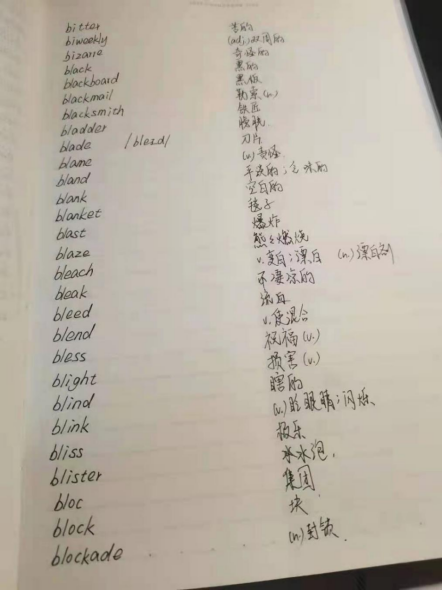 bitter 苦的
biweekly (adj.)双周的
bizarre 奇怪的
black 黑的
blackboard 黑板
blackmail 勒索(n.)
blacksmith 铁匠
bladder 膀胱
blade /bleɪd/ 刀片
blame (v)责怪
bland 平淡的;乏味的
blank 空白的
blanket 毯子
blast 爆炸
blaze 熊熊燃烧
bleach v.变白;漂白 (n.)漂白剂
bleak 不凄凉的
bleed 流血
blend v.使混合
bless 祝福(v.)
blight 损害(v.)
blind 瞎的
blink (v.)眨眼睛;闪烁
bliss 极乐
blister 水水泡.
bloc 集团
block 块.
blockade (n)封锁.